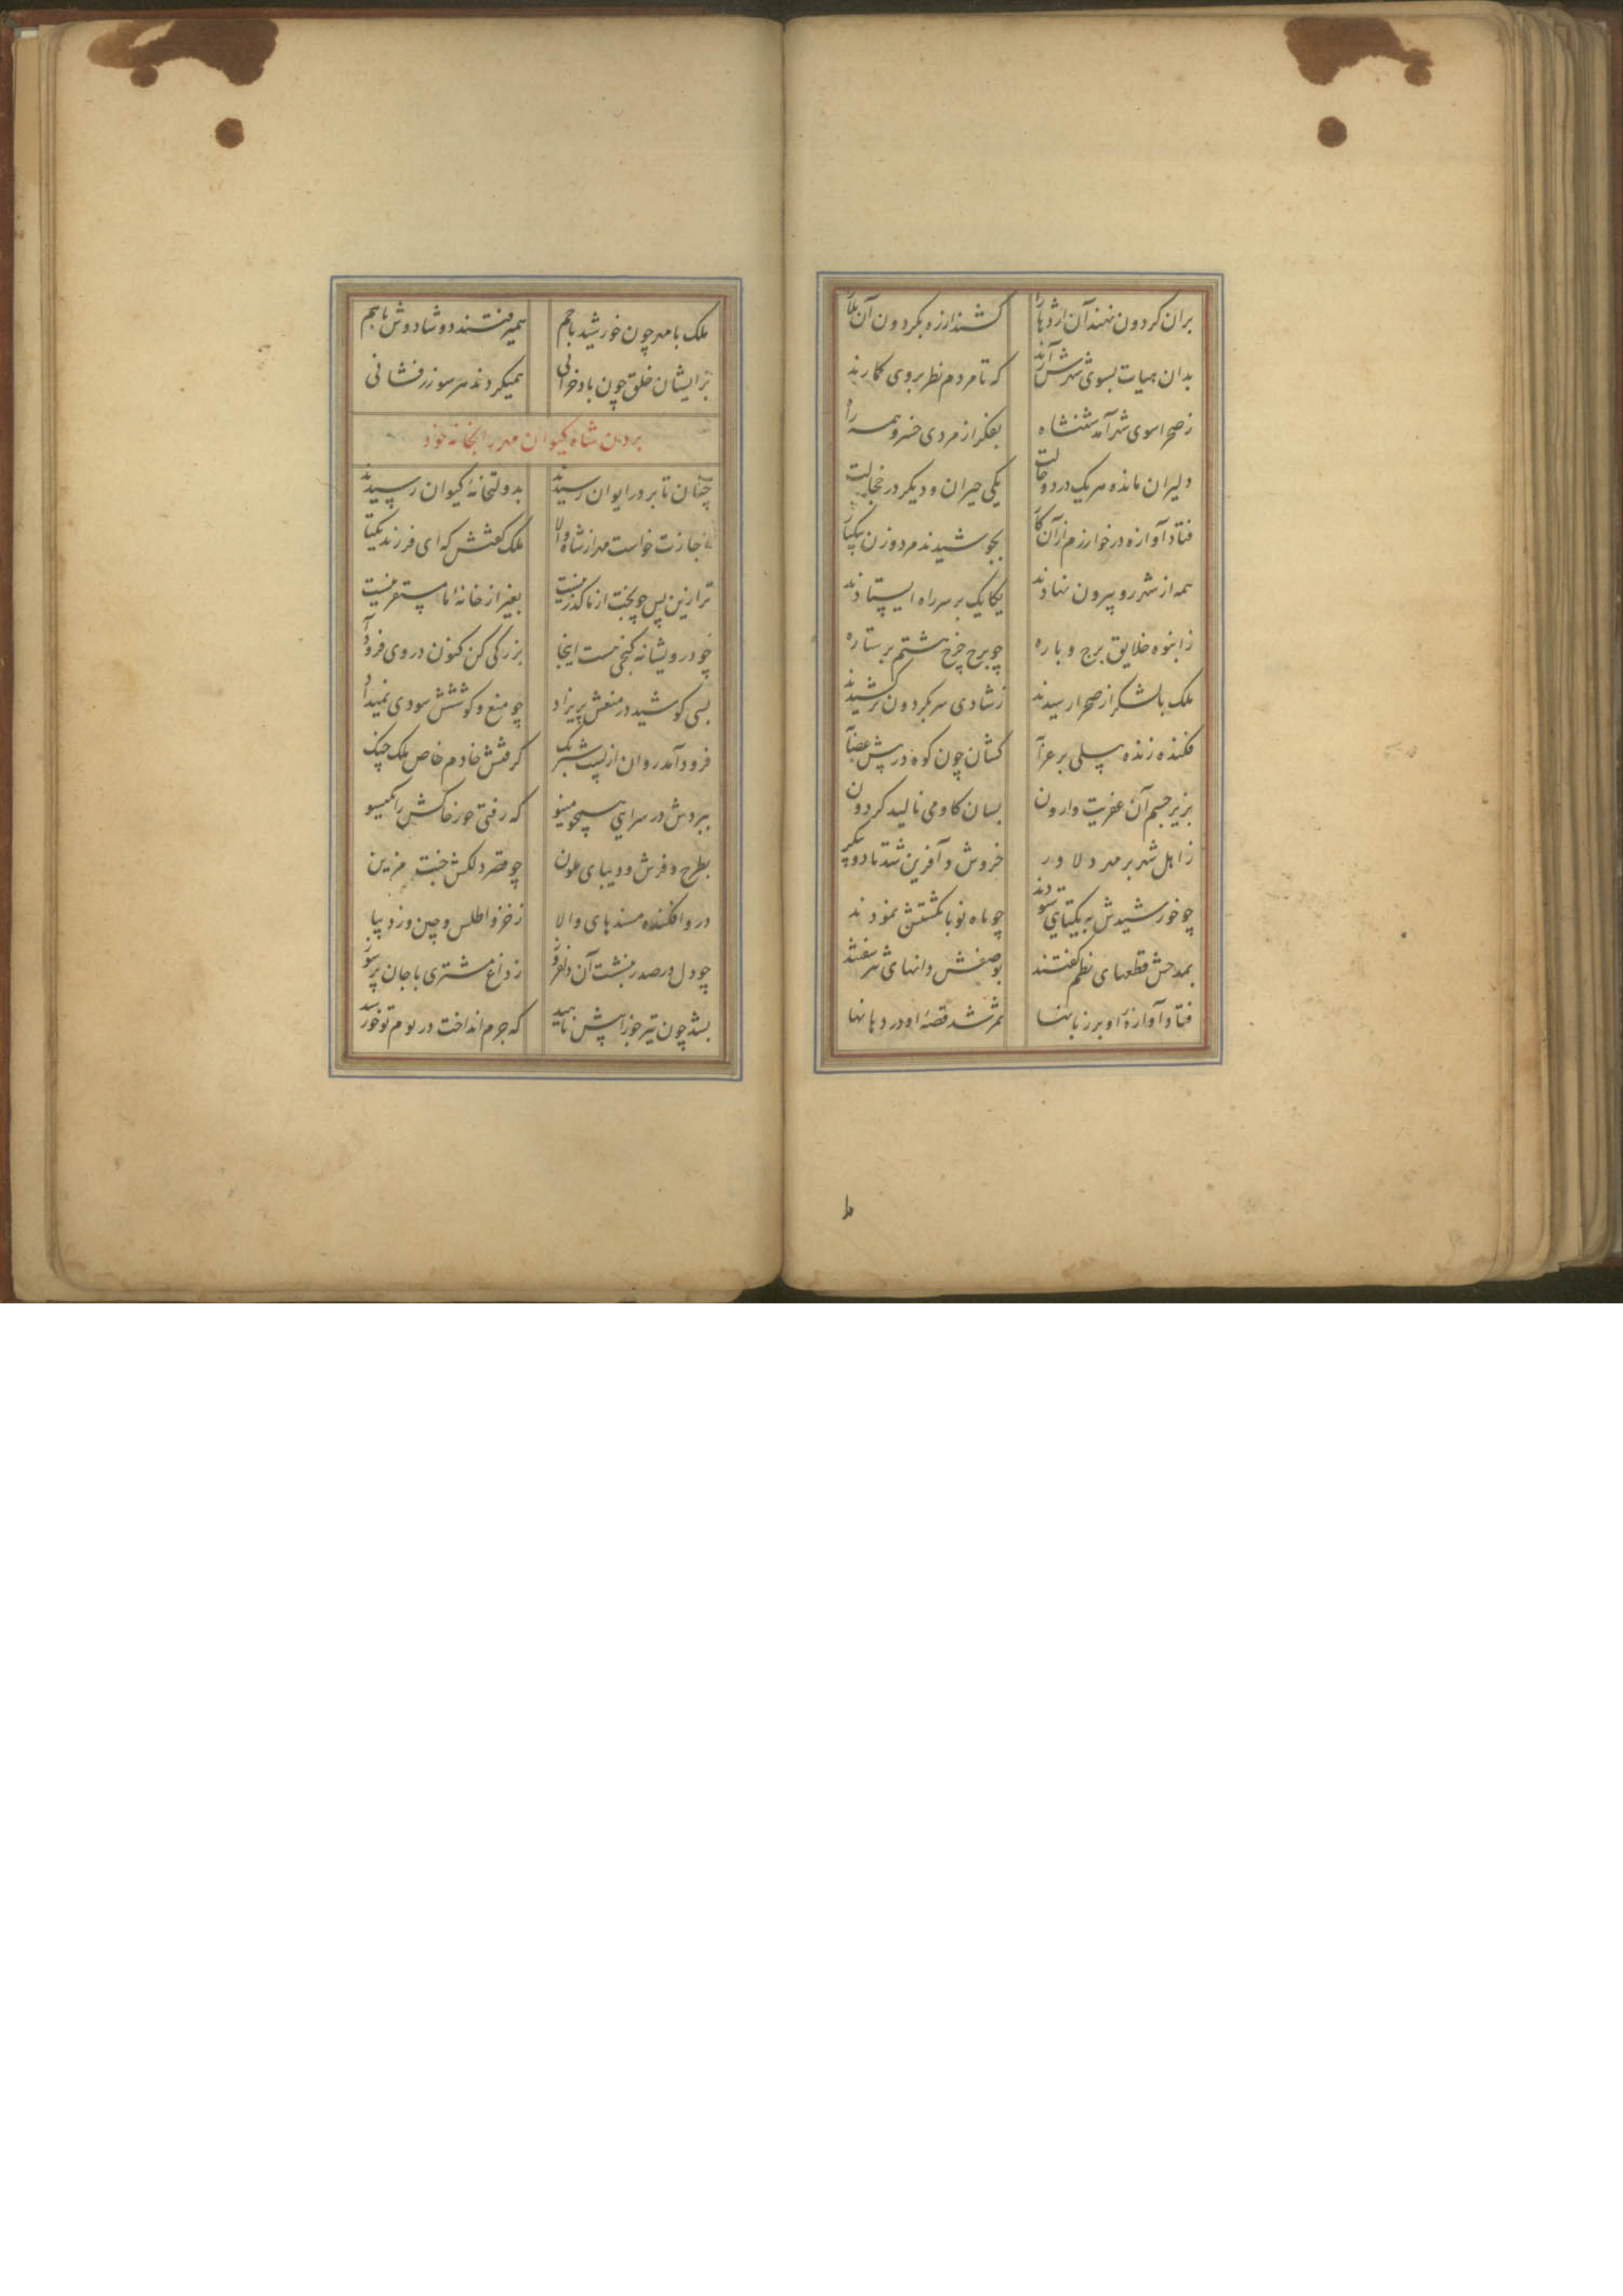 بران گردون نهند آن اژدها را کشند از ره بگردون آن بلا را
بدان هیات بسوی شهرش آرند که تا مردم نظر بر وی گمارند
ز صحرا سوی شهر آمد شهنشاه بفکر از مردی خسرو همه راه
دلیران مانده هر یک در دو حالت یکی حیران و دیگر در خجالت
فتاد آوازه در خوارزم از آن کار بجوشیدند مرد و زن بیکبار
همه از شهر رو بیرون نهادند یکایک بر سر راه ایستادند
ز انبوه خلایق برج و باره چو برج چرخ هشتم پر ستاره
ملک با لشکر از صحرا رسیدند ز شادی سر بگردون برکشیدند
فکنده زنده پیلی بر کشان چون کوه در پیش
بزیر جسم آن عفریت وارون بسان گاو می نالید گردون
ز اهل شهر بر مهر دلاور خروش و آفرین شد تا دو پیکر
چو خورشیدش به یکتایی ستودند چو ماه نو بانگشتش نمودند
بمدحش قطعهای نظم گفتند بوصفش دانهای در سفتند
فتاد آوازهٔ او بر زبانها ثمر شد قصهٔ او در دهانها
ملک با مهر چون خورشید با جم همیرفتند دوشادوش با هم
بر ایشان خلق چون باد خزانی همیکردند هر سو زرفشانی
بردن شاه کیوان مهر را بخانه خود
چنان تا بر در ایوان رسیدند بدولتخانهٔ کیوان رسیدند
اجازت خواست مهر از شاه والا ملک گفتش که ای فرزند یکتا
ترا زین پس چو بخت از ما گذر نیست بغیر از خانهٔ ما مستقر نیست
چو درویشانه کنجی هست اینجا بزرگی کن کنون در وی فرود آ
بسی کوشید در منعش پریزاد چو منع و کوشش سودی نمیداد
فرود آمد روان از پشت گرفتش خادم خاص ملک
ببردش در سرایی همچو مینو که رفتی حور خاکش را بگیسو
بطرح و فرش و دیبای ملون چو قصر دلکش جنت مزین
در و افکنده مسندهای والا ز خز و اطلس و چین و ز دیبا
چو دل در صدر بنشست آن دلفروز ز داغ مشتری با جان پر سوز
بشد چون تیر جوزا پیش ناهید که جرم انداخت در بوم تو خورشید